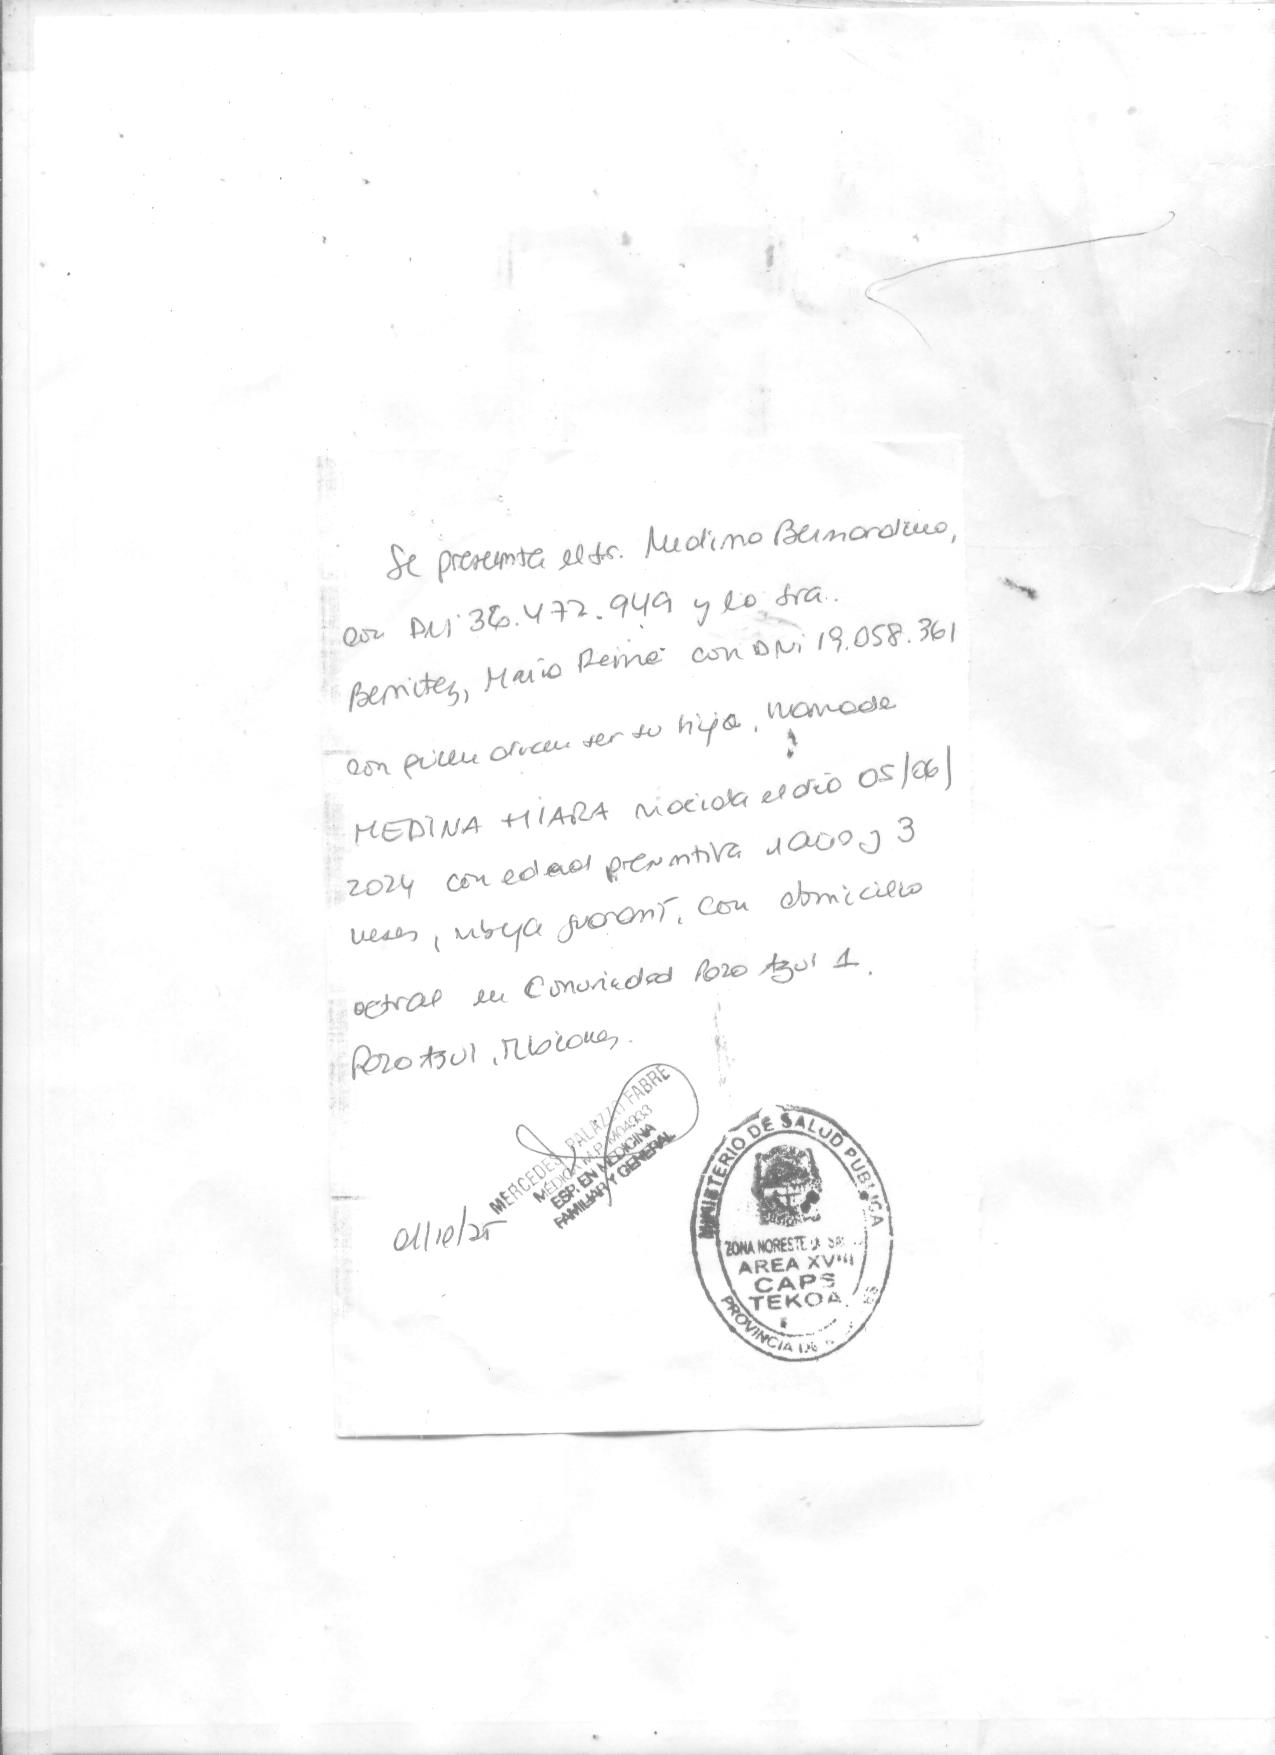 Se presenta el sr. Medina Bernardino,
con DNI 36.472.949 y la sra.
Benitez, Maria Reina con DNI 19.058.361
con quien dicen ser su hija, llamada
MEDINA MIARA nacida el día 05/06/
2024 con edad presuntiva 1 año y 3
meses, mbya guaraní, con domicilio
actual en Comunidad Pozo Azul 1.
Pozo Azul, Misiones.
MERCEDES PALAZZO FABRE
MÉDICA M.P. M04933
ESP. EN MEDICINA
FAMILIAR Y GENERAL
01/10/25
MINISTERIO DE SALUD PUBLICA
ZONA NORESTE
AREA XVIII
CAPS
TEKOA
PROVINCIA DE